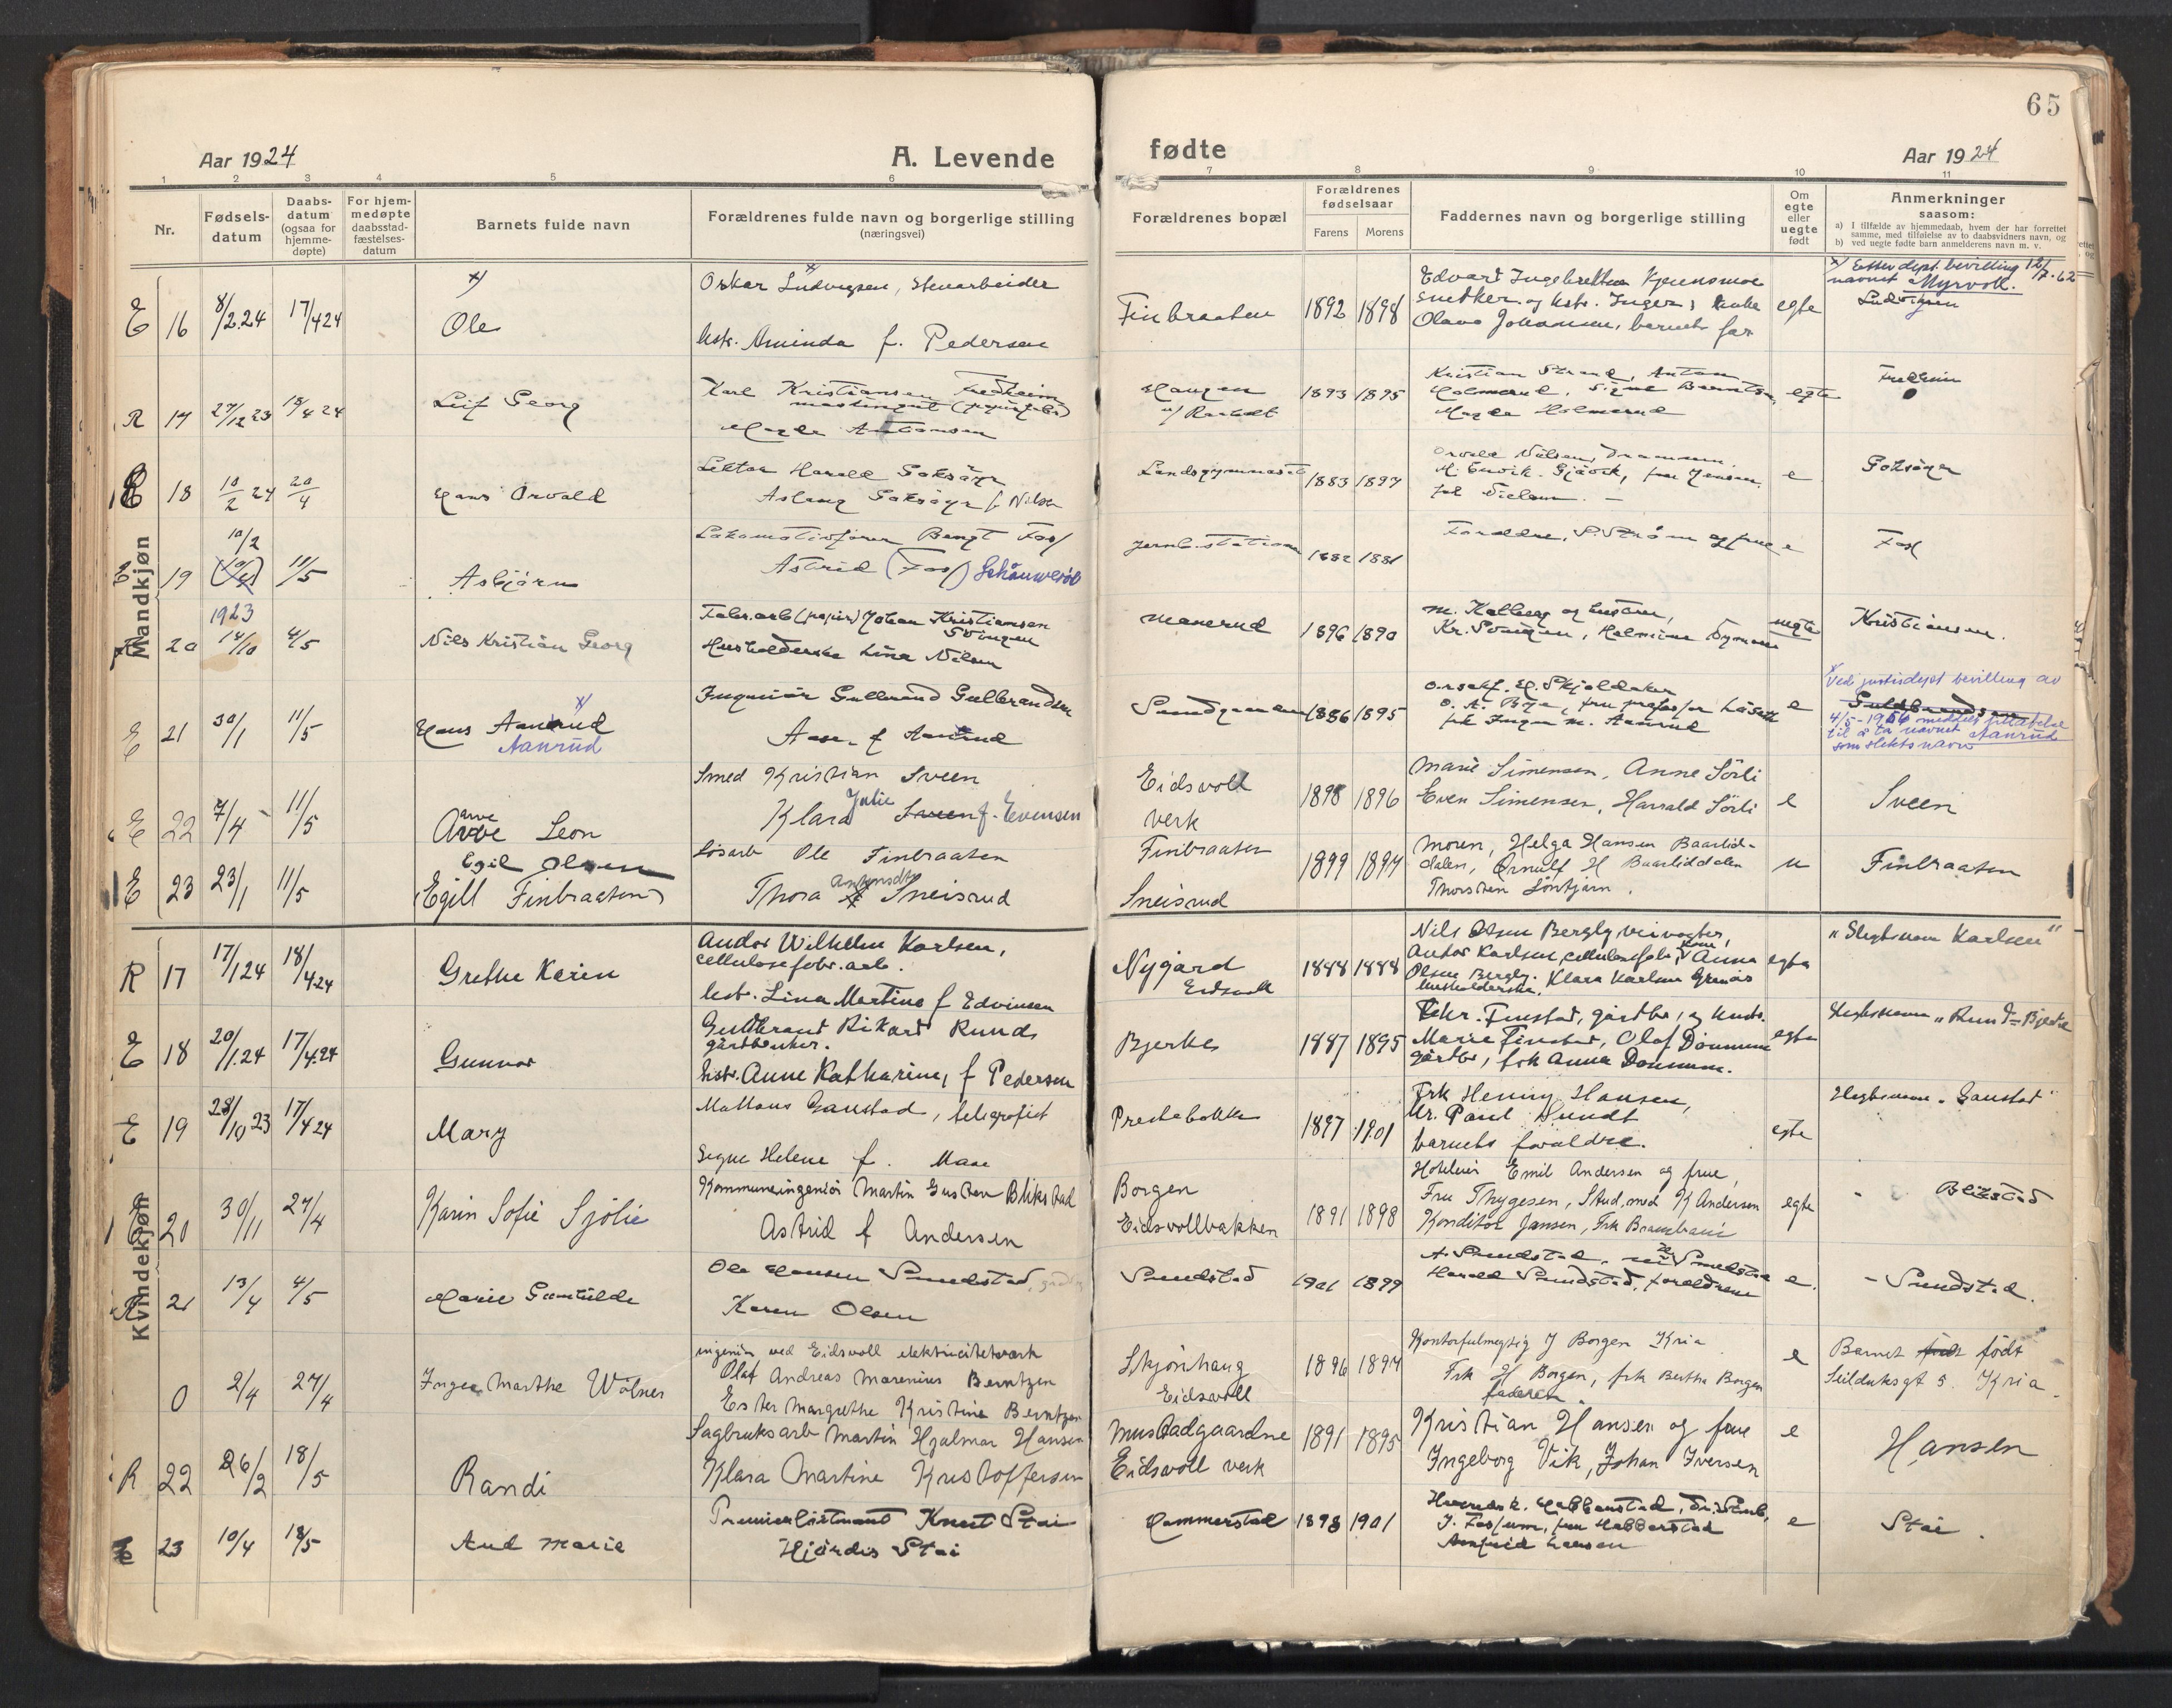 65
Aar 1924
A. Levende
fødte
Aar 1924
1 2 3 4 5 6 7 8 9 10 11
Nr.
Fødsels-
datum
Daabs-
datum
(ogsaa for
hjemme-
døpte)
For hjem-
medøpte
daabsstad-
fæstelses-
datum
Barnets fulde navn
Forældrenes fulde navn og borgerlige stilling
(næringsvei)
Forældrenes bopæl
Forældrenes
fødselsaar
Farens Morens
Faddernes navn og borgerlige stilling
Om
egte
eller
uegte
født
Anmerkninger
saasom:
a) I tilfælde av hjemmedaab, hvem der har forrettet
samme, med tilføielse av to daabsvidners navn, og
b) ved uegte fødte barn anmelderens navn m. v.
Mandkjøn
E 16 8/2.24 17/4 24
x)
Ole
Oskar Ludvigsen, Stenarbeider
hstr. Aminda f. Pedersen
Finbraaten 1892 1898
Edvart Ingebretsen
snekker og hstr. Inger,
Olava Johansen, barnets far
egte
x) Efter dept. bevilling 12/7-62
navnet Myrvoll.
Ludvigsen
R 17 27/12 23 18/4 24
Leif Georg
Karl Kristiansen Fredheim
Magda
Haugen
1893 1895
Kristian Strand, Anton
Holmerud, Signe
Magda Holmerud
egte
Fredheim
18 10/2 24 20/4
Hans Orvald
Lektor Harald Goksöyr
Aslaug Goksöyr f. Nilsen
Landsgymnaset 1883 1897
Orvald Nilsen, Drammen
e
Goksöyr
E 19 10/2 11/5
Asbjörn
Lokomotivfører Bengt Foss
Astrid (Foss)
Jernb. station 1882 1881
Foreldre, S. Ström og frue
e
Foss
20 1923 14/10 4/5
Nils Kristian Georg
Fabr.arb (papir) Johan Kristiansen
Svingen
Husholderske Lina Nilsen
Manerud 1896 1890
Kr. Svingen, Halmine
uegte
Kristiansen.
E 21 30/1 11/5
x)
Hans Aanrud
Aanrud
Ingeniør Gulbrand Gulbrandsen
Aase f Aanrud
1886 1895
O.r.sakf. H. Skjoldaker
frk Inger M. Aanrud
e
x Ved justisdept bevilling av
Guldbrandsen
4/5-1956 meddelt tillatelse
til å ta navnet Aanrud
som slektsnavn
E 22 7/4 11/5
arve
Arve Leon
Smed Kristian Sveen
Julie
Klara Sveen f. Evensen
Eidsvoll
verk
1898 1896
Marie Simensen, Anne Sörli
Even Simensen, Harrald Sörli
e
Sveen
E 23 23/1 11/5
Egil Olsen
(Egill Finbraaten)
Løsarb Ole Finbraaten
Thora Sneisrud
Finbraaten
Sneisrud
1899 1897
Moren, Helga Hansen Baarlid-
dalen, Ørnulf H Baarliddalen
Thorsten Löntjärn.
u
Finbraaten
Kvindekjøn
R 17 17/1 24 18/4 24
Grethe Karin
Andor Wilhelm Karlsen,
cellulosefabr. arb.
hstr. Lina Martine f Edvinsen
Nygård
Eidsvoll
1888 1888
Nils Olsen Bergly veivogter,
Andor Karlsen, cellulosefabr, Anna
Olsen Bergly. Klara Karlsen
husholderske.
egte
"Slegtsnavn Karlsen"
E 18 20/1.24 17/4 24
Gunvor
Guldbrand Rikard Runds
gårdbruker.
hstr. Anne Katharine, f Pedersen
Bjerke 1887 1895
Finstad, gårdbr, og hustr.
Marie Finstad, Olaf Dönnum
gårdbr, frk Anna Dönnum.
egte
Slegtsnavn "Rund-Bjerke
E 19 28/10 23 17/4 24
Mary
Mattæus Ganstad, telegrafist
Signe Helene f. Moae
Prestebakke 1897 1901
Frk Henny Hansen,
Hr. Paul Sundt
barnets foreldre.
egte
Slegtsnavn "Ganstad"
E 20 30/11 27/4
Karin Sofie Sjölie
Kommuneingeniör Martin Gustav Blikstad
Astrid f Andersen
Borgen
Eidsvollbakken
1891 1898
Hoteleier Emil Andersen og frue,
Fru Thygesen, Stud. med K Andersen
Konditor Jansen, Frk Brambani
egte
- Blikstad
R 21 13/4 4/5
Marie Gunhilde
Ole Hansen Sundstad,
Karen Olsen
Sundstad 1901 1899
A. Sundstad,
Harald Sundstad, foreldrene
e.
- Sundstad.
0 2/4 27/4
Inger Marthe Wölner
ingeniør ved Eidsvoll elektricitetsverk
Olaf Andreas Marenius Berntzen
Ester Margrethe Kristine Berntzen
Skjönhaug
Eidsvoll
1896 1897
Kontorfulmegtig J Borgen Kria
Frk H Borgen, frk Bertha Borgen
faderen.
e
Barnet født
Seilduksgt 5. Kria.
R 22 26/2 18/5
Randi
Sagbruksarb Martin Hjalmar Hansen
Klara Martine Kristoffersen
Mustadgaardne
Eidsvoll verk
1891 1895
Kristian Hansen og frue
Ingeborg Vik, Johan Iversen
e
Hansen
E 23 10/4 18/5
Aud Marie
Premierløitnant Knut Stai
Hjördis Stai
Hammerstad 1898 1901
J. Fossum, fru Habberstad
Larsen
e
Stai.